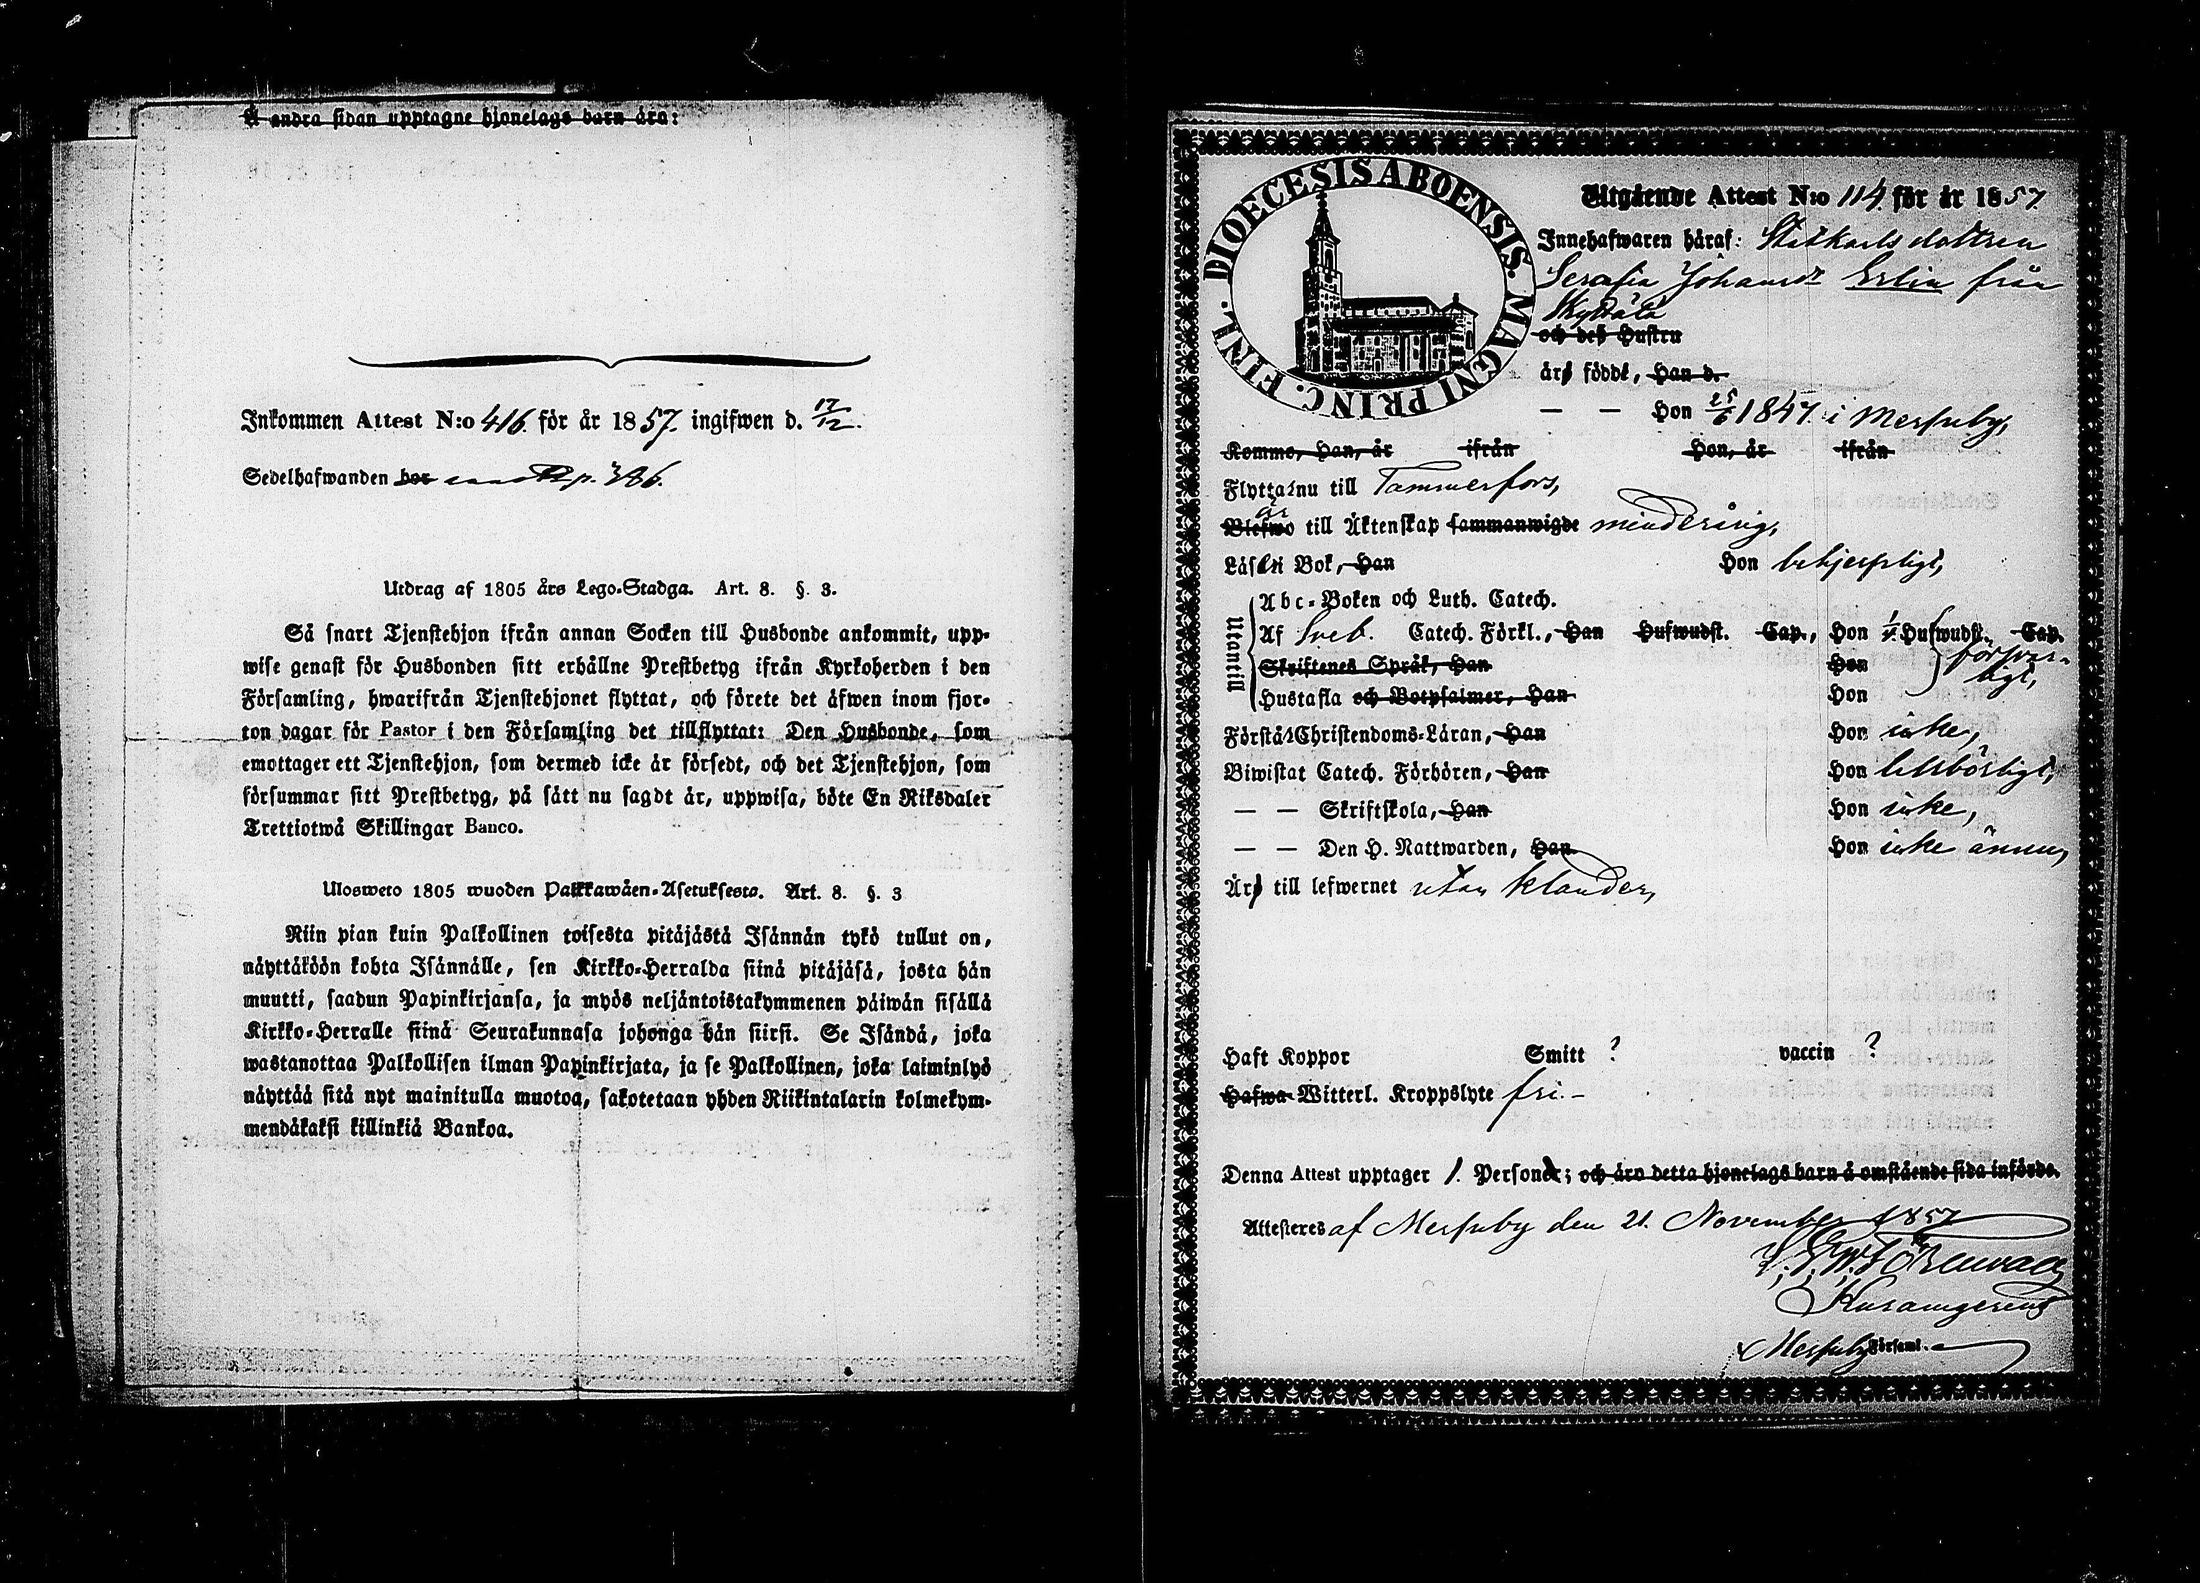 Å andra sidan upptagne hjonelags barn äro:
Inkommen Attest N:o 416 för år 1857. ingifwen d. 17/12.
Sedelhafwanden bor p. 386.
Utdrag af 1805 års Lego-Stadga. Art. 8. §. 3.
Så snart Tjenstehjon ifrån annan Socken till Husbonde ankommit, upp-
wise genast för Husbonden sitt erhållne Prestbetyg ifrån Kyrkoherden i den
Församling, hwarifrån Tjenstehjonet flyttat, och förete det äfwen inom fjor-
ton dagar för Pastor i den Församling det tillflyttat: Den Husbonde, som
emottager ett Tjenstehjon, som dermed icke är försedt, och det Tjenstehjon, som
försummar sitt Prestbetyg, på sätt nu sagdt är, uppwisa, böte En Riksdaler
Trettiotwå Skillingar Banco.
Ulosweto 1805 wuoden Palkkawäen-Asetuksesta. Art. 8. §. 3
Niin pian kuin Palkollinen toisesta pitäjästä Isännän tykö tullut on,
näyttäköön kohta Isännälle, sen Kirkko-Herralda siinä pitäjäsä, josta hän
muutti, saadun Papinkirjansa, ja myös neljäntoistakymmenen päiwän sisällä
Kirkko-Herralle siinä Seurakunnasa johonga hän siirsi. Se Isändä, joka
wastanottaa Palkollisen ilman Papinkirjata, ja se Palkollinen, joka laiminlyö
näyttää sitä nyt mainitulla muotoa, sakotetaan yhden Riikintalarin kolmekym-
mendäkaksi killinkiä Bankoa.
DIOECESIS ABOENSIS. MAGNI PRINC. FINL.
Utgående Attest N:o 114 för år 1857.
Innehafwaren häraf: Statkarlsdottren
Serafia Johansdr Erlin från
och des Hustru
äro födde, Han d.
— — Hon 25/6 1847 i Messuby,
Kommo, Han, år ifrån Hon, år ifrån
Flyttar nu till Tammerfors,
är
Blefwo till Äktenskap sammanwigde minderårig,
Läsa i Bok, Han Hon behjerpligt,
Utantill
Abc-Boken och Luth. Catech.
Af Sveb. Catech. Förkl., Han Hufwudst. Cap., Hon Hufwudst. Cap.
Skriftenes Språk, Han Hon försvar-
ligt,
Hustafla och Botpsalmer, Han Hon
Förstår Christendoms-Läran, Han Hon icke,
Biwistat Catech. Förhören, Han Hon behörligt,
— — Skriftskola, Han Hon icke,
— — Den H. Nattwarden, Han Hon icke ännu,
Äro till lefwernet utan klander,
Haft Koppor Smitt ? vaccin ?
Hafwa Witterl. Kroppslyte fri.-
Denna Attest upptager 1. Personer; och äro detta hjonelags barn å omstående sida införde.
Attesteres af Messuby den 21. November 1857
Messuby Församl.